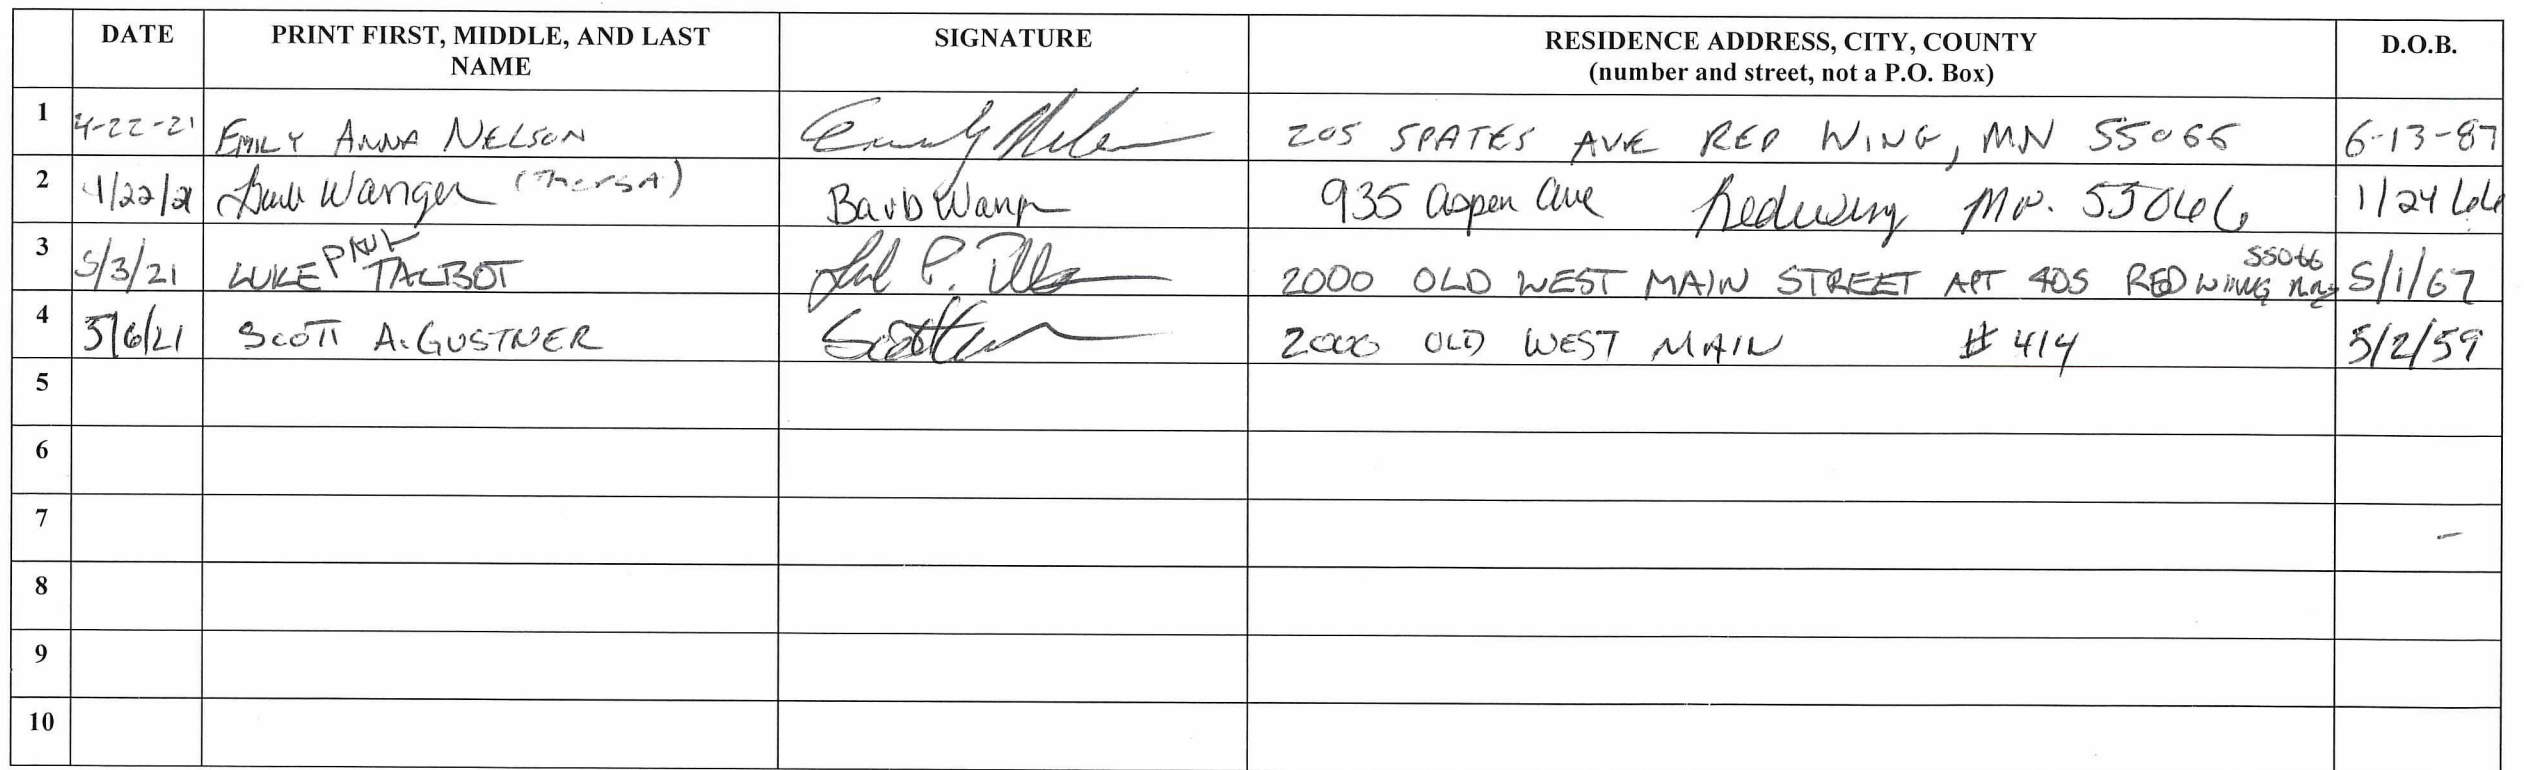 DATE PRINT FIRST, MIDDLE, AND LAST NAME SIGNATURE RESIDENCE ADDRESS, CITY, COUNTY (number and street, not a P.O. Box) D.O.B.
1 4-22-21 EMILY ANNA NELSON 205 SPATES AVE RED WING, MN 55066 6-13-87
2 4/22/21 Barb Wanger (TherSA) Barb Wang 935 Aspen Ave Redwing Mn. 55066 1/24/66
3 5/3/21 LUKE PAUL TALBOT 2000 OLD WEST MAIN STREET APT 405 RED WING MN 55066 5/1/67
4 5/6/21 SCOTT A. GUSTNER Scott 2000 OLD WEST MAIN # 414 5/2/59
5
6
7
8
9
10